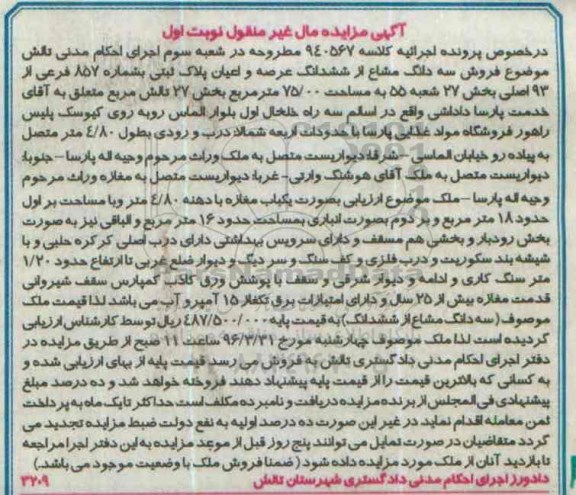 آگهی مزایده مال غیر منقول نوبت اول
درخصوص پرونده اجرائیه کلاسه ۹٤۰۵۶۷ مطروحه در شعبه سوم اجرای احکام مدنی تالش
موضوع فروش سه دانگ مشاع از ششدانگ عرصه و اعیان پلاک ثبتی بشماره ۸۵۷ فرعی از
۹۳ اصلی بخش ۲۷ شعبه ۵۵ به مساحت ۷۵/۰۰ مترمربع بخش ۲۷ تالش مربع متعلق به آقای
خدمت پارسا داداشی واقع در اسالم سه راه خلخال اول بلوار الماس روبه روی کیوسک پلیس
راهور فروشگاه مواد غذایی پارسا با حدودات اربعه شمالا: درب و رودی بطول ٤/۸۰ متر متصل
به پیاده رو خیابان الماسی - شرقا: دیواریست متصل به ملک وراث مرحوم وجیه اله پارسا - جنوبا:
دیواریست متصل به ملک آقای هوشنگ وارثی - غربا: دیواریست متصل به مغازه وراث مرحوم
وجیه اله پارسا - ملک موضوع ارزیابی بصورت یکباب مغازه با دهنه ٤/۸۰ متر وبا مساحت بر اول
حدود ۱۸ متر مربع و بر دوم بصورت انباری بمساحت حدود ۱۶ متر مربع و الباقی نیز به صورت
بخش رودبار و بخشی هم مسقف و دارای سرویس بهداشتی دارای درب اصلی کرکره حلبی و با
شیشه بند سکوریت و درب فلزی و کف سنگ و سر دیگ و دیوار ضلع غربی تا ارتفاع حدود ۱/۲۰
متر سنگ کاری و ادامه و دیوار شرقی و سقف با پوشش ورق کاذب کمپارس سقف شیروانی
قدمت مغازه بیش از ۲۵ سال و دارای امتیازات برق تکفاز ۱۵ آمپر و آب می باشد لذا قیمت ملک
موصوف (سه دانگ مشاع از ششدانگ) به قیمت پایه ٤۸۷/۵۰۰/۰۰۰ ریال توسط کارشناس ارزیابی
گردیده است لذا ملک موصوف چهارشنبه مورخ ۹۶/۳/۳۱ ساعت ۱۱ صبح از طریق مزایده در
دفتر اجرای احکام مدنی دادگستری تالش به فروش می رسد قیمت پایه از بهای ارزیابی شده و
به کسانی که بالاترین قیمت را از قیمت پایه پیشنهاد دهند فروخته خواهد شد و ده درصد مبلغ
پیشنهادی فی المجلس از برنده مزایده دریافت و نامبرده مکلف است حداکثر تا یک ماه به پرداخت
ثمن معامله اقدام نماید در غیر این صورت ده درصد اولیه به نفع دولت ضبط مزایده تجدید می
گردد متقاضیان در صورت تمایل می توانند پنج روز قبل از موعد مزایده به این دفتر اجرا مراجعه
تا بازدید آنان از ملک مورد مزایده داده شود (ضمنا فروش ملک با وضعیت موجود می باشد.)
دادورز اجرای احکام مدنی دادگستری شهرستان تالش
۳۲۰۹